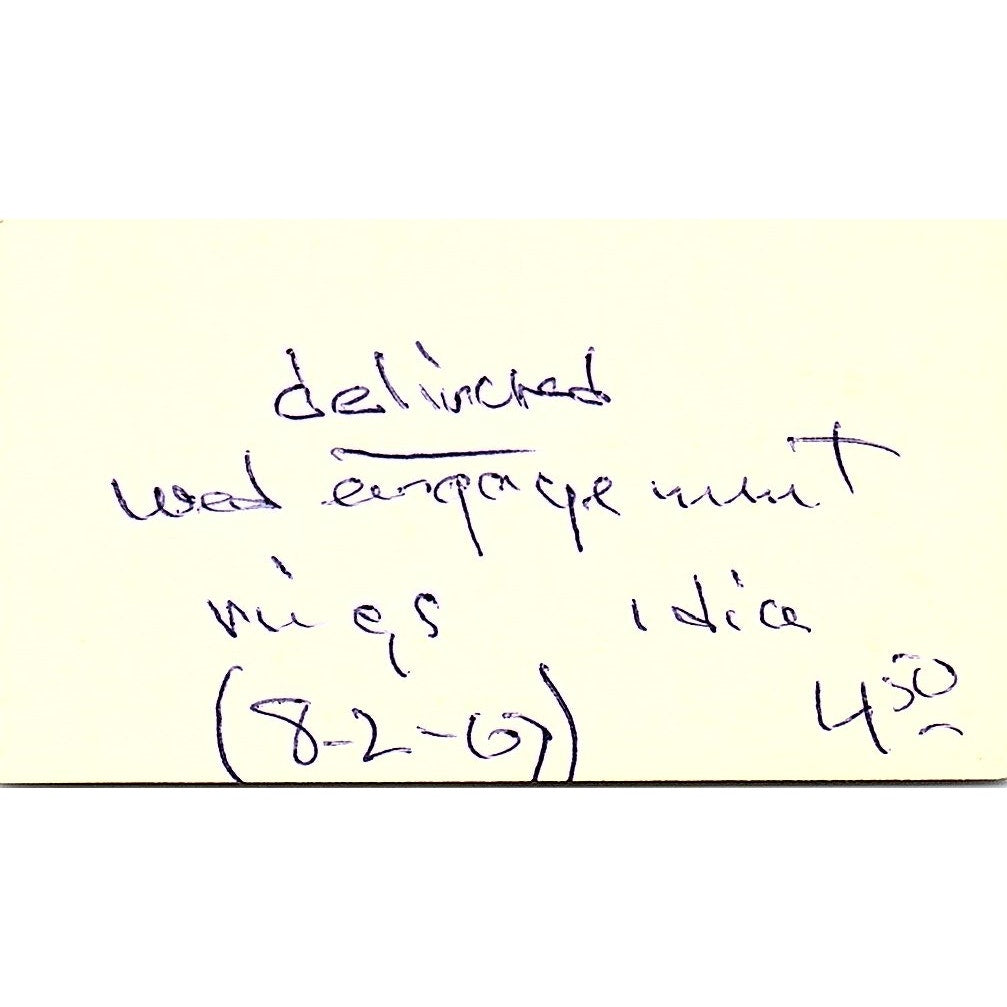 delivered
wed engagement
rings 1 dia
(8-2-67)
4 50